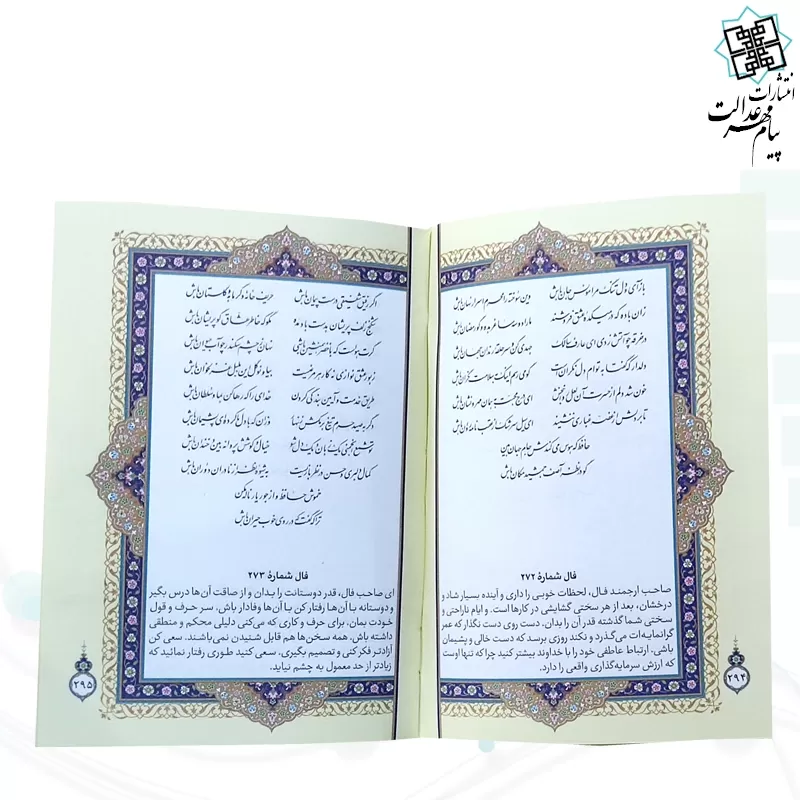 انتشارات
پیام مهر عدالت
باز آی و دل تنگ مرا مونس جان باش وین سوخته را محرم اسرار نهان باش
زان باده که در میکده عشق فروشند ما را دو سه ساغر بده و گو رمضان باش
در خرقه چو آتش زدی ای عارف سالک جهدی کن و سرحلقه رندان جهان باش
دلدار که گفتا به توام دل نگران است گو می‌رسم اینک به سلامت نگران باش
خون شد دلم از حسرت آن لعل روان‌بخش ای درج محبت به همان مهر و نشان باش
تا بر دلش از غصه غباری ننشیند ای سیل سرشک از عقب نامه روان باش
حافظ که هوس می‌کندش جام جهان‌بین
گو در نظر آصف جمشید مکان باش
فال شمارهٔ ۲۷۲
صاحب ارجمند فال، لحظات خوبی را داری و آینده بسیار شاد و
درخشان، بعد از هر سختی گشایشی در کارها است. و ایام ناراحتی و
سختی شما گذشته قدر آن را بدان. دست روی دست نگذار که عمر
گرانمایه‌ات می‌گذرد و نکند روزی برسد که دست خالی و پشیمان
باشی. ارتباط عاطفی خود را با خداوند بیشتر کنید چرا که تنها اوست
که ارزش سرمایه‌گذاری واقعی را دارد.
۲۹۴
اگر رفیق شفیقی درست پیمان باش حریف خانه و گرمابه و گلستان باش
شکنج زلف پریشان به دست باد مده مگو که خاطر عشاق گو پریشان باش
گرت هواست که با خضر همنشین باشی نهان ز چشم سکندر چو آب حیوان باش
زبور عشق نوازی نه کار هر مرغیست بیا و نوگل این بلبل غزلخوان باش
طریق خدمت و آیین بندگی کردن خدای را که رها کن به ما و سلطان باش
دگر به صید حرم تیغ برمکش زنهار وزان که با دل ما کرده‌ای پشیمان باش
تو شمع انجمنی یک زبان و یک دل شو خیال و کوشش پروانه بین و خندان باش
کمال دلبری و حسن در نظربازیست به شیوه نظر از نادران دوران باش
خموش حافظ و از جور یار ناله مکن
ترا که گفت که در روی خوب حیران باش
فال شمارهٔ ۲۷۳
ای صاحب فال، قدر دوستانت را بدان و از صاقت آن‌ها درس بگیر
و دوستانه با آن‌ها رفتار کن با آن‌ها وفادار باش. سر حرف و قول
خودت بمان، برای حرف و کاری که می‌کنی دلیلی محکم و منطقی
داشته باش. همه سخن‌ها هم قابل شنیدن نمی‌باشند. سعی کن
آزادتر فکر کنی و تصمیم بگیری، سعی کنید طوری رفتار نمائید که
زیادتر از حد معمول به چشم نیاید.
۲۹۵